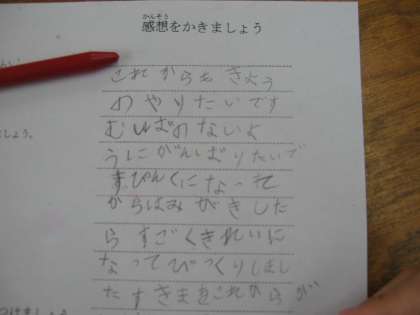 かんそう
感想をかきましょう
これからもきょう
のやりたいです
むしばのないよ
うにがんばりたいで
すぴんくになって
からはみがきした
らすごくきれいに
なってびっくりしまし
たすきまをこれからが
しょう。
つけましょう